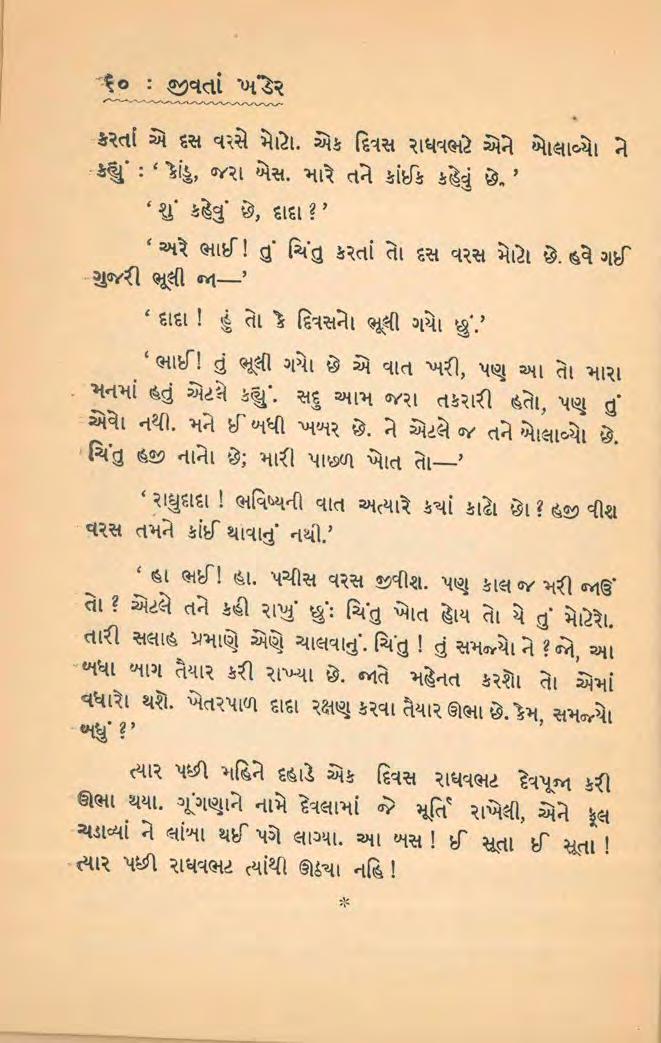 ૬૦ : જીવતાં ખંડેર
કરતાં એ દસ વરસે મોટો. એક દિવસ રાઘવભટે એને બોલાવ્યો ને
કહ્યું : ‘ કાંડુ, જરા બેસ. મારે તને કાંઈક કહેવું છે. ’
‘ શું કહેવું છે, દાદા ? ’
‘ અરે ભાઈ ! તું ચિંતુ કરતાં તો દસ વરસ મોટો છે. હવે ગઈ
ગુજરી ભૂલી જા—’
‘ દાદા ! હું તો કે દિવસનો ભૂલી ગયો છું.’
‘ ભાઈ! તું ભૂલી ગયો છે એ વાત ખરી, પણ આ તો મારા
મનમાં હતું એટલે કહ્યું. સદુ આમ જરા તકરારી હતો, પણ તું
એવો નથી. મને ઈ બધી ખબર છે. ને એટલે જ તને બોલાવ્યો છે.
ચિંતુ હજી નાનો છે; મારી પાછળ ખોત તો—’
‘ રાઘુદાદા ! ભવિષ્યની વાત અત્યારે કયાં કાઢો છો ? હજી વીશ
વરસ તમને કાંઈ થાવાનું નથી.’
‘ હા ભઈ! હા. પચીસ વરસ જીવીશ. પણ કાલ જ મરી જાઉં
તો ? એટલે તને કહી રાખું છુંઃ ચિંતુ ખોત હોય તો યે તું મોટેરો.
તારી સલાહ પ્રમાણે એણે ચાલવાનું. ચિંતુ ! તું સમજ્યો ને ? જો, આ
બધા બાગ તૈયાર કરી રાખ્યા છે. જાતે મહેનત કરશો તો એમાં
વધારો થશે. ખેતરપાળ દાદા રક્ષણ કરવા તૈયાર ઊભા છે. કેમ, સમજ્યો
બધું ?’
ત્યાર પછી મહિને દહાડે એક દિવસ રાઘવભટ દેવપૂજા કરી
ઊભા થયા. ગૂંગણાને નામે દેવલામાં જે મૂર્તિ રાખેલી, એને ફૂલ
ચડાવ્યાં ને લાંબા થઈ પગે લાગ્યા. આ બસ ! ઈ સૂતા ઈ સૂતા !
ત્યાર પછી રાઘવભટ ત્યાંથી ઊઠ્યા નહિ !
*